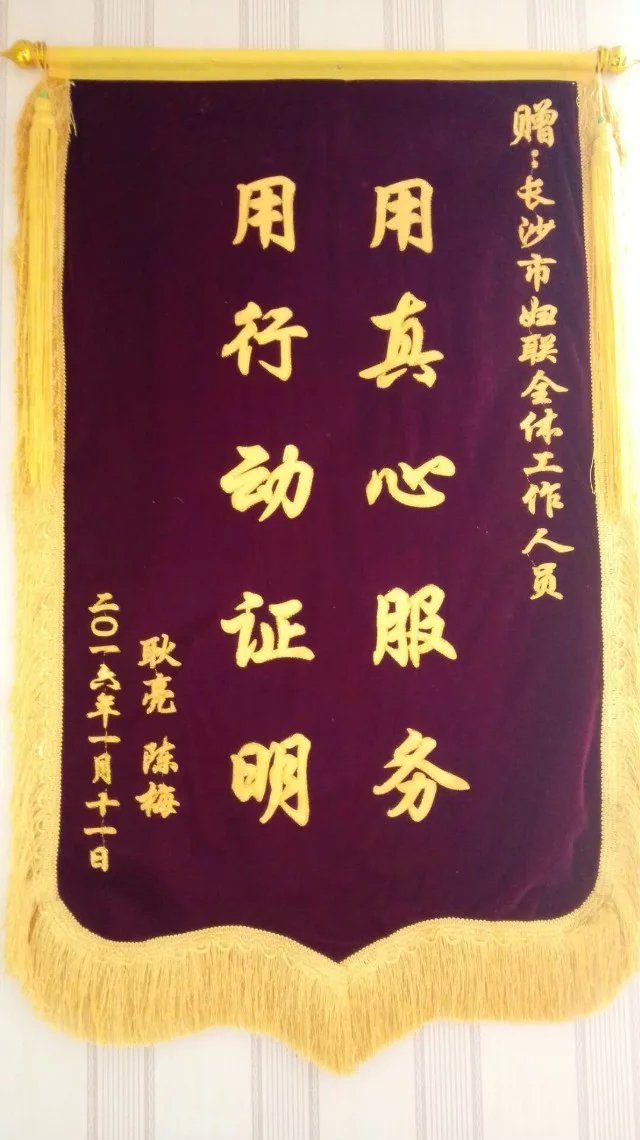 赠：长沙市妇联全体工作人员
用真心服务
用行动证明
耿亮 陈梅
二〇一六年一月十一日